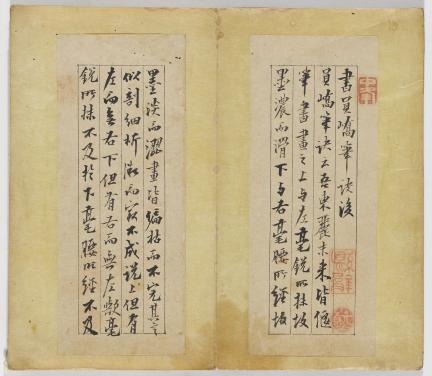 書員嶠筆訣後
員嶠筆訣云吾東麗末来皆偃
筆書畫之上與左毫銳所抹故
墨濃而滑下與右毫腰所經故
墨淡而澀畫皆偏枯而不完其言
似剖細析微而寂不成說上但有
左而無右下但有右而無左歟毫
銳所抹不及於下毫腰所經不及